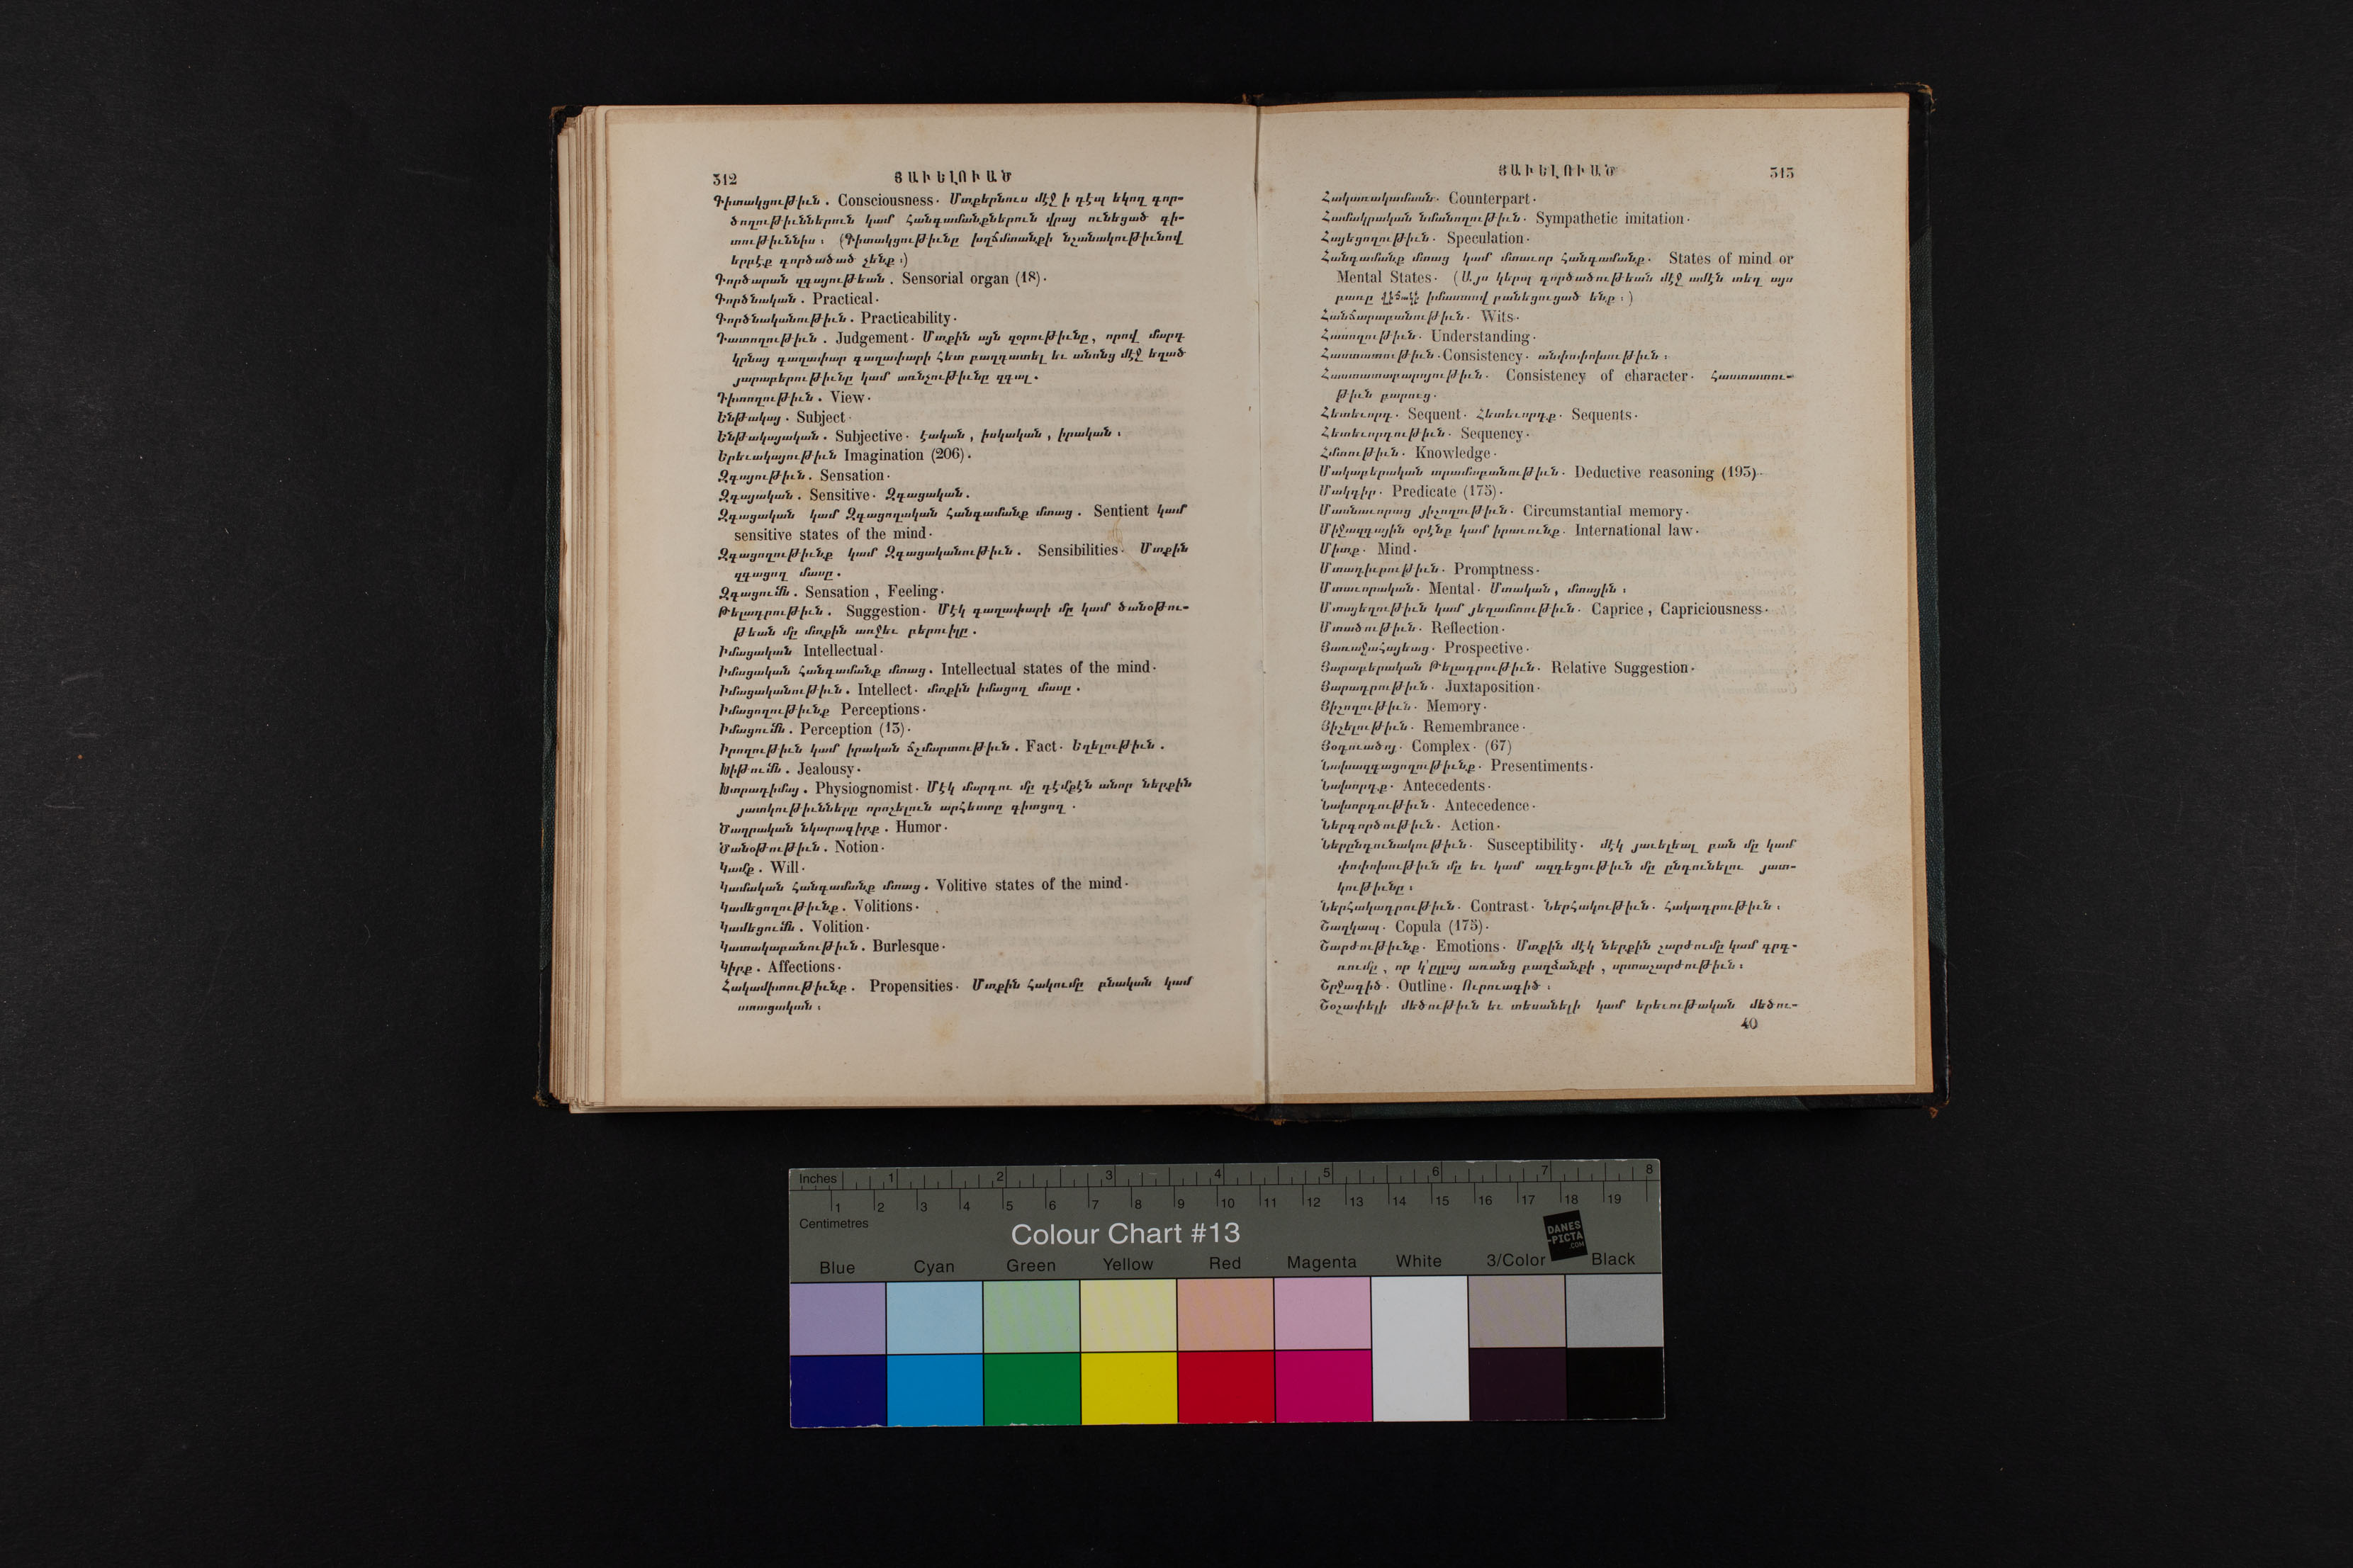 312 ՅԱՒԵԼՈՒԱԾ
Գիտակցութիւն. Consciousness. Մտքերնուս մէջ ի դէպ եկող գոր-
ծողութիւններուն կամ Հանգամանքներուն վրայ ունեցած գի-
տութիւննիս։ (Գիտակցութիւնը խղճմտանքի նշանակութիւնով
երբէք գործածած չենք։)
Գործարան զգայութեան. Sensorial organ (18).
Գործնական. Practical.
Գործնականութիւն. Practicability.
Դատողութիւն. Judgement. Մտքին այն զօրութիւնը, որով մարդ
կրնայ գաղափար գաղափարի հետ բաղդատել եւ անոնց մէջ եղած
յարաբերութիւնը կամ առնչութիւնը զգալ.
Դիտողութիւն. View.
Ենթակայ. Subject.
Ենթակայական. Subjective. էական, իսկական, իրական։
Երեւակայութիւն Imagination (206).
Զգայութիւն. Sensation.
Զգայական. Sensitive. Զգացական.
Զգացական կամ Զգացողական հանգամանք մտաց. Sentient կամ
sensitive states of the mind.
Զգացողութիւնք կամ Զգացականութիւն. Sensibilities. Մտքին
զգացող մասը.
Զգացումն. Sensation, Feeling.
Թելադրութիւն. Suggestion. Մէկ գաղափարի մը կամ ծանօթու-
թեան մը մտքին առջեւ բերուիլը.
Իմացական Intellectual.
Իմացական հանգամանք մտաց. Intellectual states of the mind.
Իմացականութիւն. Intellect. մտքին իմացող մասը.
Իմացողութիւնք Perceptions.
Իմացումն. Perception (13).
Իրողութիւն կամ իրական ճշմարտութիւն. Fact. Եղելութիւն.
Խիթումն. Jealousy.
Խտրադիմայ. Physiognomist. Մէկ մարդու մը դէմքէն անոր ներքին
յատկութիւնները որոշելուն արհեստը գիտցող.
Ծաղրական նկարագիրք. Humor.
Ծանօթութիւն. Notion.
Կամք. Will.
Կամական հանգամանք մտաց. Volitive states of the mind.
Կամեցողութիւնք. Volitions.
Կամեցումն. Volition.
Կատակաբանութիւն. Burlesque.
Կիրք. Affections.
Հակամիտութիւնք. Propensities. Մտքին հակումը բնական կամ
ստացական։
ՅԱՒԵԼՈՒԱԾ 313
Հակառակամասն. Counterpart.
Համակրական նմանողութիւն. Sympathetic imitation.
Հայեցողութիւն. Speculation.
Հանգամանք մտաց կամ մտաւոր հանգամանք. States of mind or
Mental States. (Այս կերպ գործածութեան մէջ ամէն տեղ այս
բառը վիճակի իմաստով բանեցուցած ենք։)
Հանճարաբանութիւն. Wits.
Հասողութիւն. Understanding.
Հաստատութիւն. Consistency. անփոփոխութիւն։
Հաստատաբարոյութիւն. Consistency of character. Հաստատու-
թիւն բարուց.
Հետեւորդ. Sequent. Հետեւորդք. Sequents.
Հետեւորդութիւն. Sequency.
Հմտութիւն. Knowledge.
Մակաբերական տրամաբանութիւն. Deductive reasoning (193).
Մակդիր. Predicate (175).
Մասնաւորաց յիշողութիւն. Circumstantial memory.
Միջազգային օրէնք կամ իրաւունք. International law.
Միտք. Mind.
Մտադիւրութիւն. Promptness.
Մտաւորական. Mental. Մտական, մտային։
Մտայեղութիւն կամ յեղամտութիւն. Caprice, Capriciousness.
Մտածութիւն. Reflection.
Յառաջահայեաց. Prospective.
Յարաբերական Թելադրութիւն. Relative Suggestion.
Յարադրութիւն. Juxtaposition.
Յիշողութիւն. Memory.
Յիշելութիւն. Remembrance.
Յօդուածոյ. Complex. (67)
Նախազգացողութիւնք. Presentiments.
Նախորդք. Antecedents.
Նախորդութիւն. Antecedence.
Ներգործութիւն. Action.
Ներընդունակութիւն. Susceptibility. մէկ յաւելեալ բան մը կամ
փոփոխութիւն մը եւ կամ ազդեցութիւն մը ընդունելու յատ-
կութիւնը։
Ներհակադրութիւն. Contrast. Ներհակութիւն. Հակադրութիւն։
Շաղկապ. Copula (175).
Շարժութիւնք. Emotions. Մտքին մէկ ներքին շարժումը կամ գրգ-
ռումը, որ կ'ըլլայ առանց բաղձանքի, սրտաշարժութիւն։
Շրջագիծ. Outline. Ուրուագիծ։
Շօշափելի մեծութիւն եւ տեսանելի կամ երեւութական մեծու-
40
Inches 1 2 3 4 5 6 7 8
1 2 3 4 5 6 7 8 9 10 11 12 13 14 15 16 17 18 19
Centimetres
Colour Chart #13
DANES
-PICTA
.COM
Blue Cyan Green Yellow Red Magenta White 3/Color Black